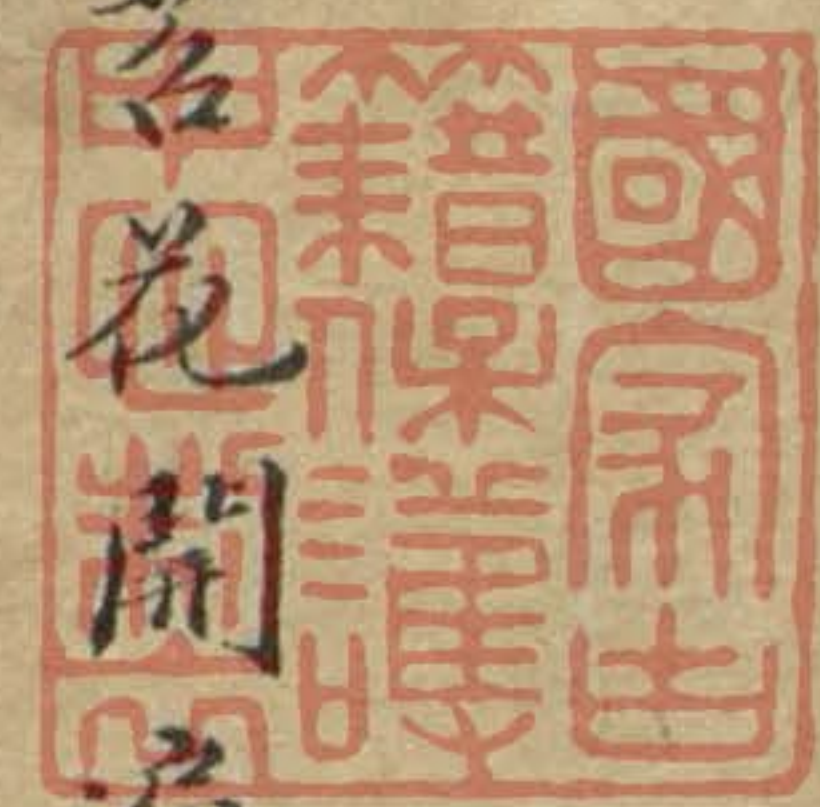 國家古
籍保護
中心藏
花開